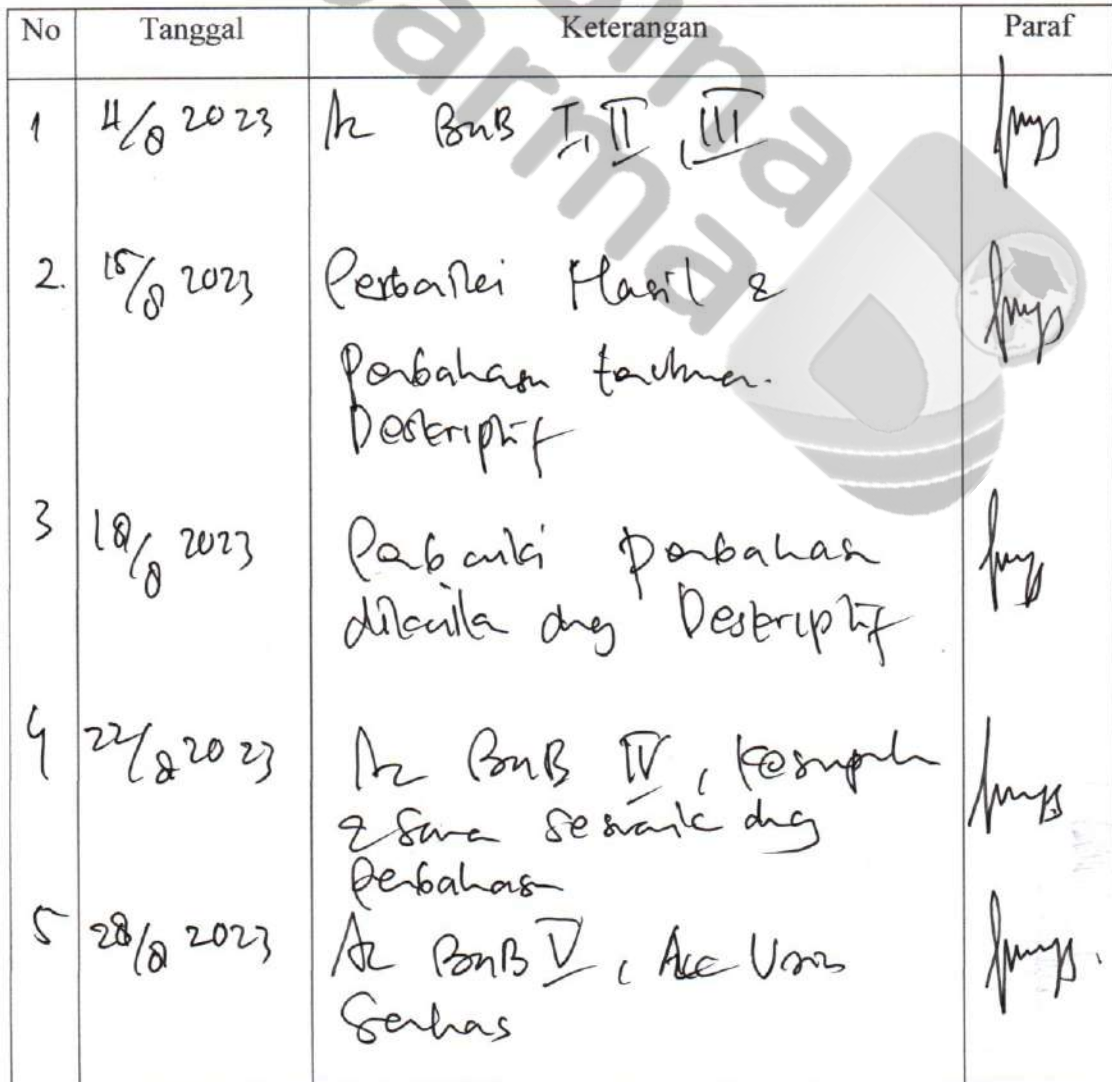 No Tanggal Keterangan Paraf
bina
darma
1 4/8 2023 Acc BAB I, II, III
2. 15/8 2023 Perbaiki Hasil &
Pembahasan
Deskriptif
3 18/8 2023 Perbaiki pembahasan
dng Deskriptif
4 22/8 2023 Acc BAB IV, Kesimpulan
& Saran sesuaik dng
Pembahasan
5 28/8 2023 Acc BAB V, Acc
Semhas